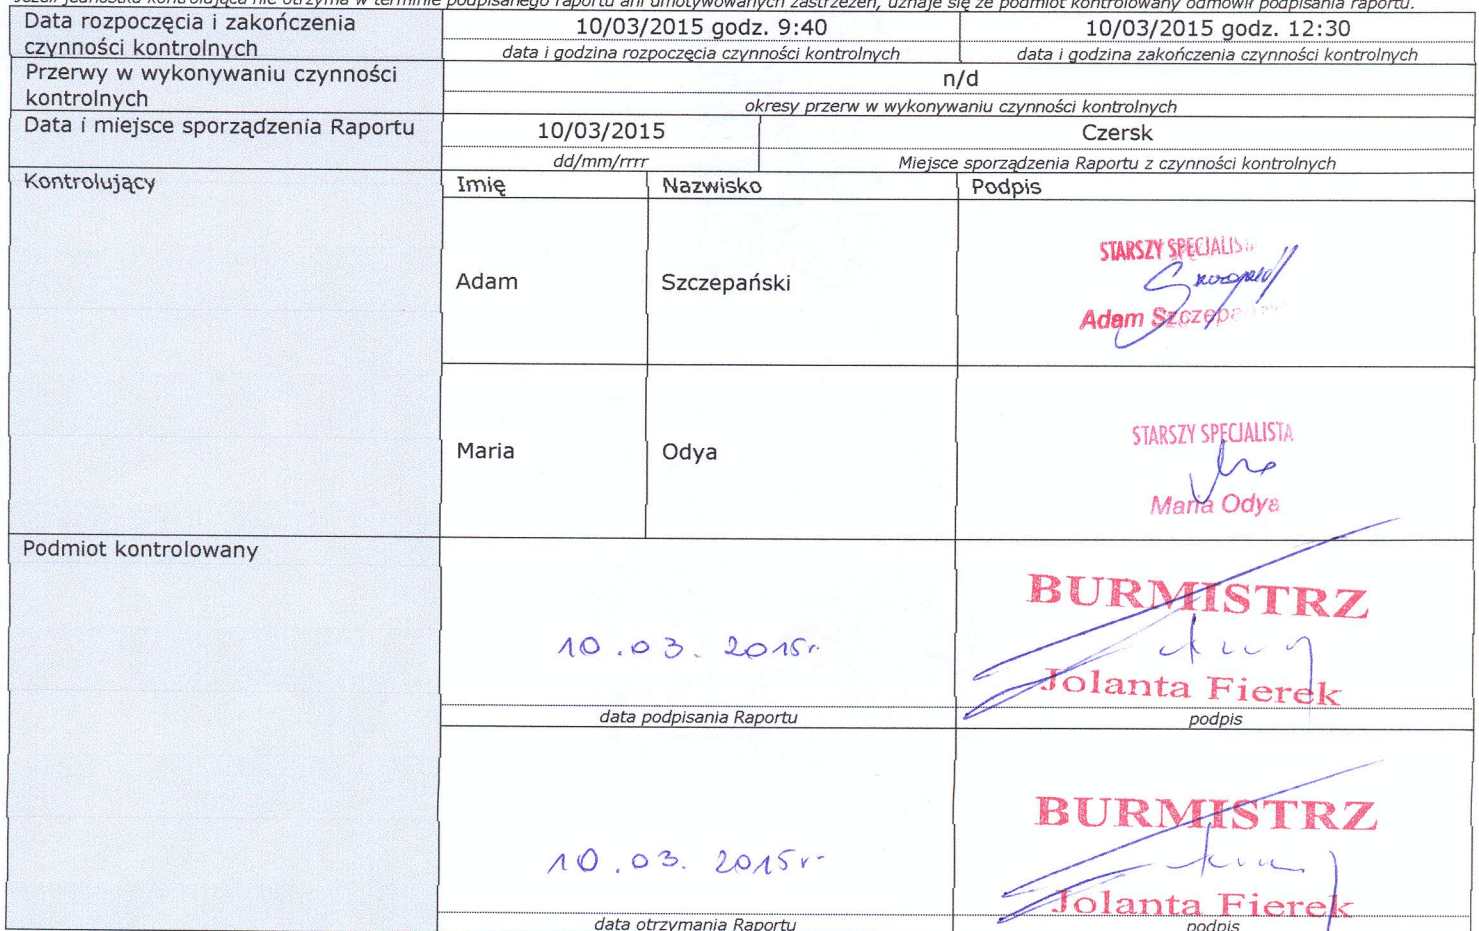 Jeżeli jednostka kontrolująca nie otrzyma w terminie podpisanego raportu ani umotywowanych zastrzeżeń, uznaje się że podmiot kontrolowany odmówił podpisania raportu.
Data rozpoczęcia i zakończenia czynności kontrolnych
10/03/2015 godz. 9:40
10/03/2015 godz. 12:30
data i godzina rozpoczęcia czynności kontrolnych
data i godzina zakończenia czynności kontrolnych
Przerwy w wykonywaniu czynności kontrolnych
n/d
okresy przerw w wykonywaniu czynności kontrolnych
Data i miejsce sporządzenia Raportu
10/03/2015
Czersk
dd/mm/rrrr
Miejsce sporządzenia Raportu z czynności kontrolnych
Kontrolujący
Imię
Nazwisko
Podpis
Adam
Szczepański
STARSZY SPECJALISTA
Adam Szczepa
Maria
Odya
STARSZY SPECJALISTA
Maria Odya
Podmiot kontrolowany
10.03.2015r.
BURMISTRZ
Jolanta Fierek
data podpisania Raportu
podpis
10.03.2015r.
BURMISTRZ
Jolanta Fierek
data otrzymania Raportu
podpis